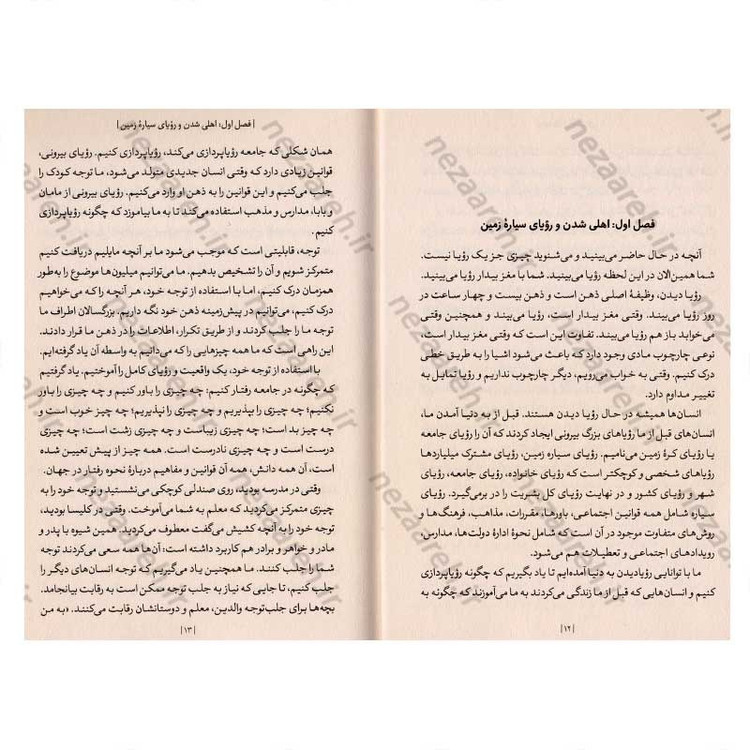 فصل اول: اهلی شدن و رؤیای سیارهٔ زمین
آنچه در حال حاضر می‌بینید و می‌شنوید چیزی جز یک رؤیا نیست.
شما همین‌الان در این لحظه رؤیا می‌بینید. شما با مغز بیدار رؤیا می‌بینید.
رؤیا دیدن، وظیفهٔ اصلی ذهن است و ذهن بیست و چهار ساعت در
روز رؤیا می‌بیند. وقتی مغز بیدار است، رؤیا می‌بیند و همچنین وقتی
می‌خوابد باز هم رؤیا می‌بیند. تفاوت این است که وقتی مغز بیدار است،
نوعی چارچوب مادی وجود دارد که باعث می‌شود اشیا را به طریق خطی
درک کنیم. وقتی به خواب می‌رویم، دیگر چارچوب نداریم و رؤیا تمایل به
تغییر مداوم دارد.
انسان‌ها همیشه در حال رؤیا دیدن هستند. قبل از به دنیا آمدن ما،
انسان‌های قبل از ما رؤیاهای بزرگ بیرونی ایجاد کردند که آن را رؤیای جامعه
یا رؤیای کرهٔ زمین می‌نامیم. رؤیای سیاره زمین، رؤیای مشترک میلیاردها
رؤیاهای شخصی و کوچکتر است که رؤیای خانواده، رؤیای جامعه، رؤیای
شهر و رؤیای کشور و در نهایت رؤیای کل بشریت را در برمی‌گیرد. رؤیای
سیاره شامل همه قوانین اجتماعی، باورها، مقررات، مذاهب، فرهنگ‌ها و
روش‌های متفاوت موجود در آن است که شامل نحوهٔ ادارهٔ دولت‌ها، مدارس،
رویدادهای اجتماعی و تعطیلات هم می‌شود.
ما با توانایی رؤیادیدن به دنیا آمده‌ایم تا یاد بگیریم که چگونه رؤیاپردازی
کنیم و انسان‌هایی که قبل از ما زندگی می‌کردند به ما می‌آموزند که چگونه به
|۱۲|
| فصل اول: اهلی شدن و رؤیای سیارهٔ زمین |
همان شکلی که جامعه رؤیاپردازی می‌کند، رؤیاپردازی کنیم. رؤیای بیرونی،
قوانین زیادی دارد که وقتی انسان جدیدی متولد می‌شود، ما توجه کودک را
جلب می‌کنیم و این قوانین را به ذهن او وارد می‌کنیم. رؤیای بیرونی از مامان
و بابا، مدارس و مذهب استفاده می‌کند تا به ما بیاموزد که چگونه رؤیاپردازی
کنیم.
توجه، قابلیتی است که موجب می‌شود ما بر آنچه مایلیم دریافت کنیم
متمرکز شویم و آن را تشخیص بدهیم. ما می‌توانیم میلیون‌ها موضوع را به‌طور
همزمان درک کنیم، اما با استفاده از توجه خود، هر آنچه را که می‌خواهیم
درک کنیم، می‌توانیم در پیش‌زمینه ذهن خود نگه داریم. بزرگسالان اطراف ما
توجه ما را جلب کردند و از طریق تکرار، اطلاعات را در ذهن ما قرار دادند.
این راهی است که ما همه چیزهایی را که می‌دانیم به واسطه آن یاد گرفته‌ایم.
با استفاده از توجه خود، یک واقعیت و رؤیای کامل را آموختیم. یاد گرفتیم
که چگونه در جامعه رفتار کنیم: چه چیزی را باور کنیم و چه چیزی را باور
نکنیم؛ چه چیزی را بپذیریم و چه چیزی را نپذیریم؛ چه چیز خوب است و
چه چیز بد است؛ چه چیزی زیباست و چه چیزی زشت است؛ چه چیزی
درست است و چه چیزی نادرست است. همه چیز از پیش تعیین شده
است، آن همه دانش، همه آن قوانین و مفاهیم دربارهٔ نحوه رفتار در جهان.
وقتی در مدرسه بودید، روی صندلی کوچکی می‌نشستید و توجه خود را به
چیزی متمرکز می‌کردید که معلم به شما می‌آموخت. وقتی در کلیسا بودید،
توجه خود را به آنچه کشیش می‌گفت معطوف می‌کردید. همین شیوه با پدر و
مادر و خواهر و برادر هم کاربرد داشته است: آن‌ها همه سعی می‌کردند توجه
شما را جلب کنند. ما همچنین یاد می‌گیریم که توجه انسان‌های دیگر را
جلب کنیم، تا جایی که نیاز به جلب توجه ممکن است به رقابت بیانجامد.
بچه‌ها برای جلب‌توجه والدین، معلم و دوستانشان رقابت می‌کنند. «به من
|۱۳|
nezaareh.ir